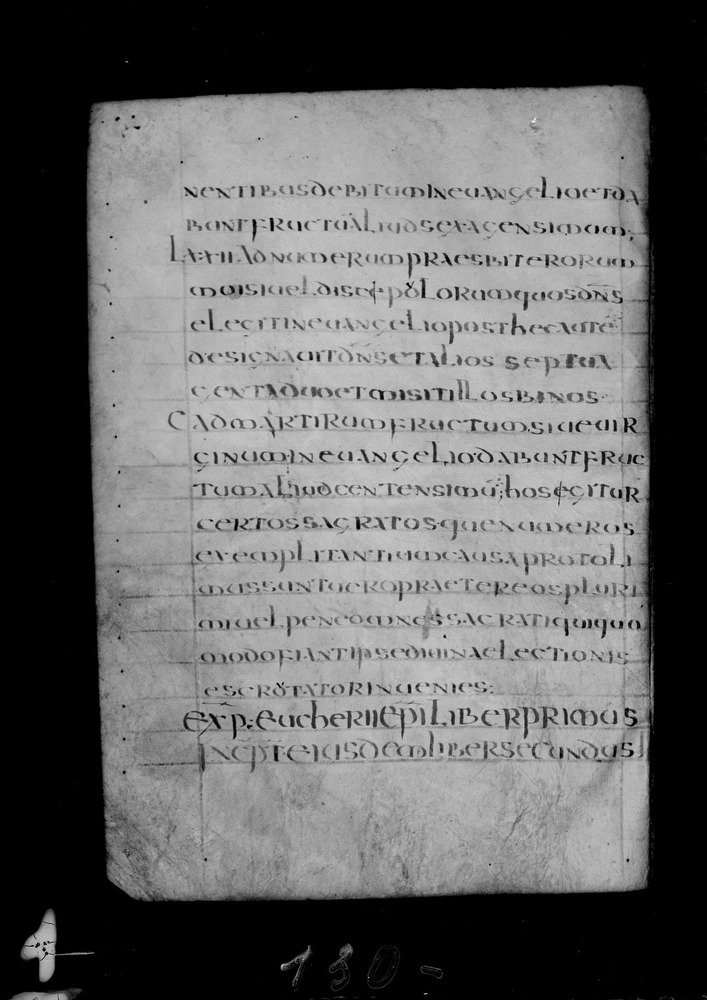 nentibus debitum in euangelio et da
bunt fructū aliud sexagensimum;
LXXII ad numerum praesbiterorum
moisi uel discipolorum quos dn̄s
elegit in euangelio post hec autē
designauit dn̄s et alios septua
genta duo et misit illos binos
C ad martirum fructum siue uir
ginum in euangelio dabunt fruc
tum aliud centensimū; hos egitur
certos sacratosque numeros
exempli tantum causa protoli
mus sunt uero praeter eos pluri
mi uel pene omnes sacrati quiquo
modo fiant ipse diuinae lectionis
escrutator inuenies:
exp: eucherii epī liber primus
incpt eiusdem liber secundus
130-